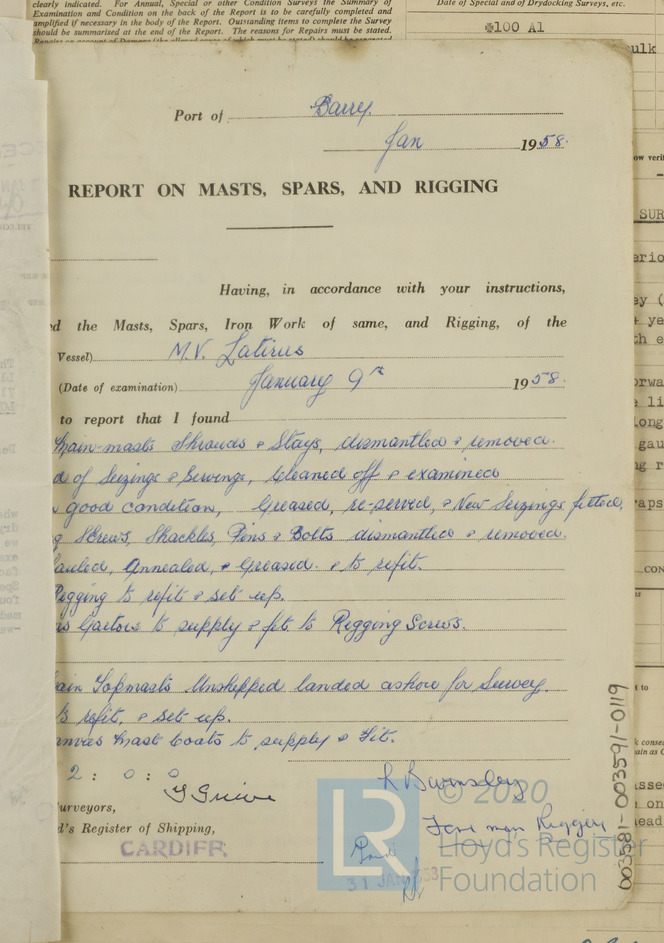 clearly indicated. For Annual, Special or other Condition Surveys the Summary of
Examination and Condition on the back of the Report is to be carefully completed and
amplified if necessary in the body of the Report. Outstanding items to complete the Survey
should be summarised at the end of the Report. The reasons for Repairs must be stated.
Date of Special and of Drydocking Surveys, etc.
100 A1
ulk
Port of Barry.
Jan 1958.
REPORT ON MASTS, SPARS, AND RIGGING
Having, in accordance with your instructions,
d the Masts, Spars, Iron Work of same, and Rigging, of the
Vessel) M.V. Latirus
(Date of examination) January 9th 1958.
to report that I found
main-masts Shrouds & Stays, dismantled & removed.
d of Seizings & Servings, Cleaned off & examined
good condition, Greased, re-served, & New Seizings fitted,
g Screws, Shackles, Pins & Bolts dismantled & removed.
auled, Annealed, & Greased. & to refit.
Rigging to refit & set up.
as Gaiters to supply & fit to Rigging Screws.
ain Topmasts Unshipped landed ashore for Survey.
to refit, & set up.
anvas Mast Coats to supply & Fit.
2 : 0 : 0
urveyors,
d's Register of Shipping,
CARDIFF
Foreman Rigger
31 JAN
LR
© 2020
Lloyd's Register
Foundation
003581-003591-0119